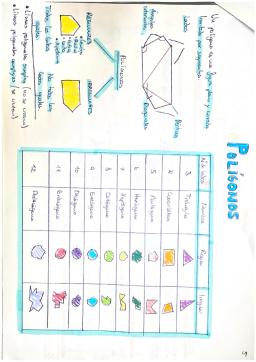 POLÍGONOS
Un polígono es una figura plana y cerrada
formada por segmentos
Lados
Ángulos
Vértice
Diagonales
POLÍGONOS
REGULARES
IRREGULARES
Todos los lados
No todos los
iguales
lados iguales
• Líneas poligonales simples (no se cruzan)
• Líneas poligonales complejas (se cruzan)
Nº de lados Nombre Regular Irregular
3 Triángulo
4 Cuadrilátero
5 Pentágono
6 Hexágono
7 Heptágono
8 Octógono
9 Eneágono
10 Decágono
11 Endecágono
12 Dodecágono